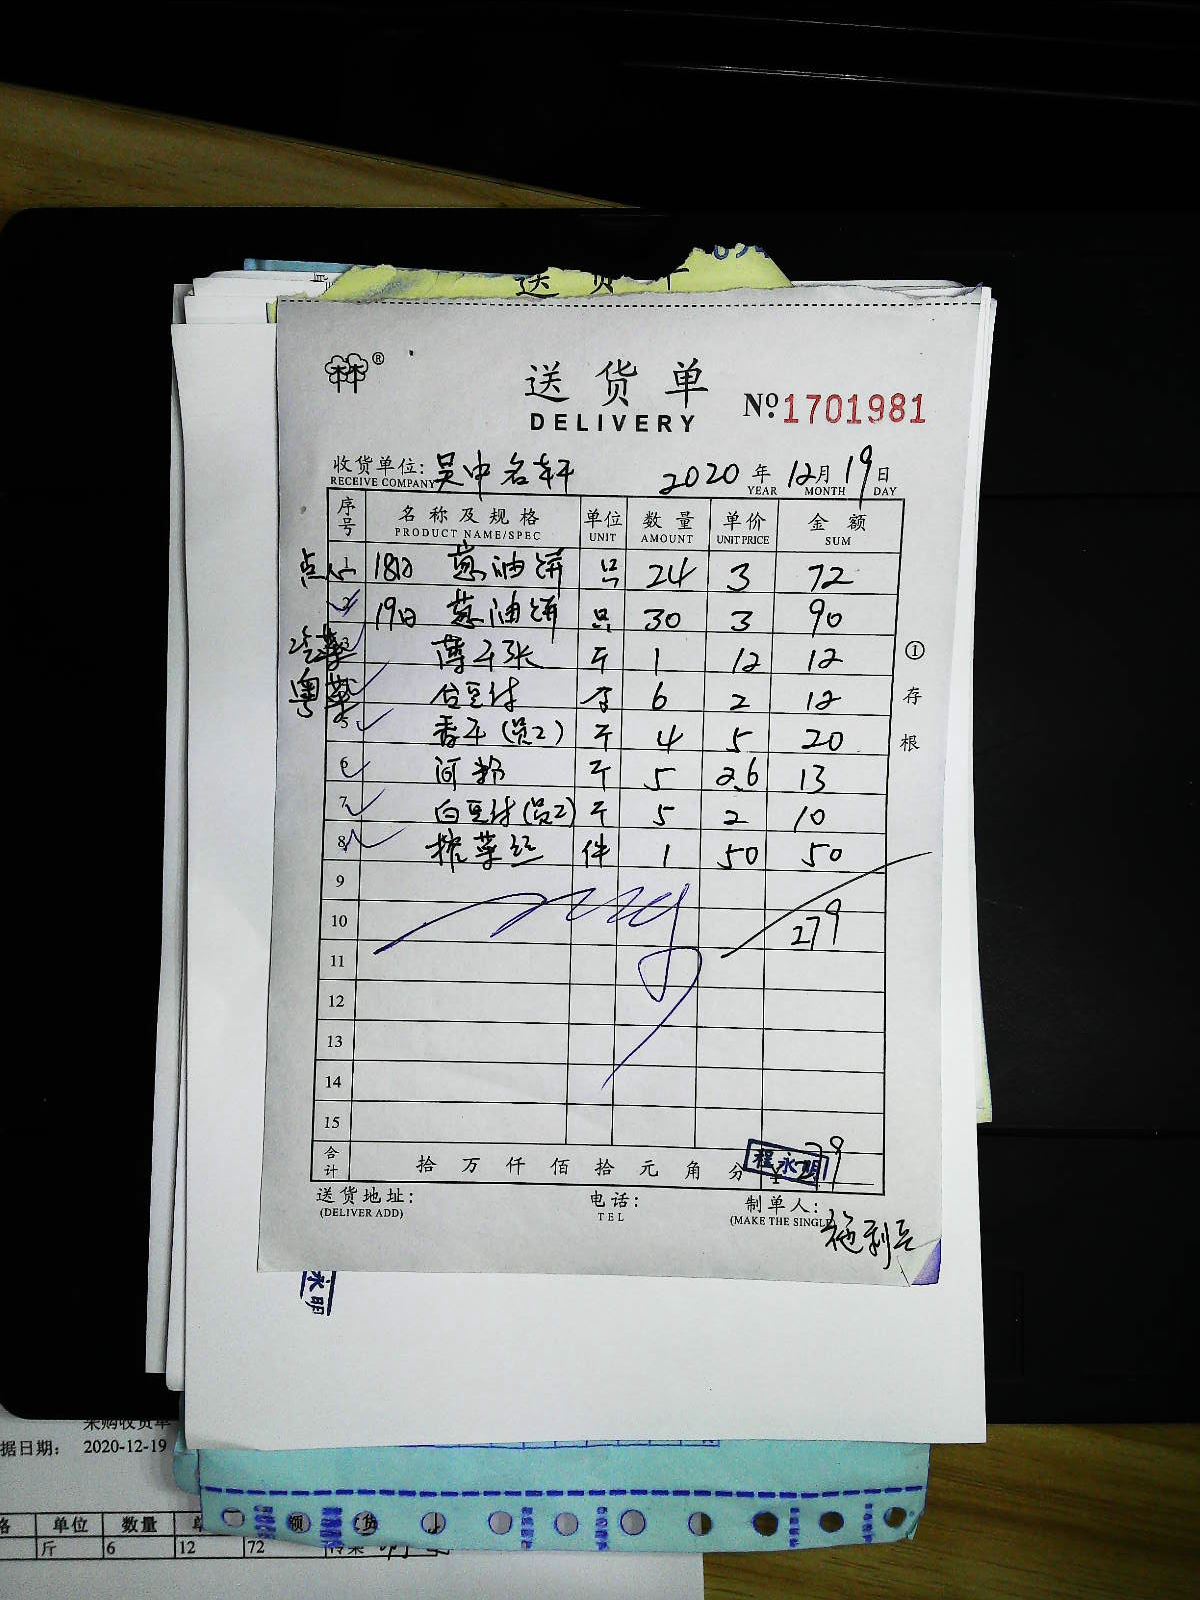 送货单
®
送货单
DELIVERY
№ 1701981
收货单位: 吴中名轩 2020 年 12 月 19 日
RECEIVE COMPANY YEAR MONTH DAY
序号 名称及规格 单位 数量 单价 金额
PRODUCT NAME/SPEC UNIT AMOUNT UNIT PRICE SUM
点心 1 18日 葱油饼 只 24 3 72
2 19日 葱油饼 只 30 3 90
3 薄千张 斤 1 12 12
粤菜 台豆付 6 2 12
5 香干(员2) 斤 4 5 20
6 河粉 斤 5 2.6 13
7 白豆付(员2) 斤 5 2 10
8 榨菜丝 件 1 50 50
9
10 279
11
12
13
14
15
合计 拾 万 仟 佰 拾 元 角 分 ¥ 279
程永明
送货地址: 电话: 制单人:
(DELIVER ADD) TEL (MAKE THE SINGLE
施利兵
① 存根
永明
采购收货单
据日期: 2020-12-19
格 单位 数量 单 额
斤 6 12 72